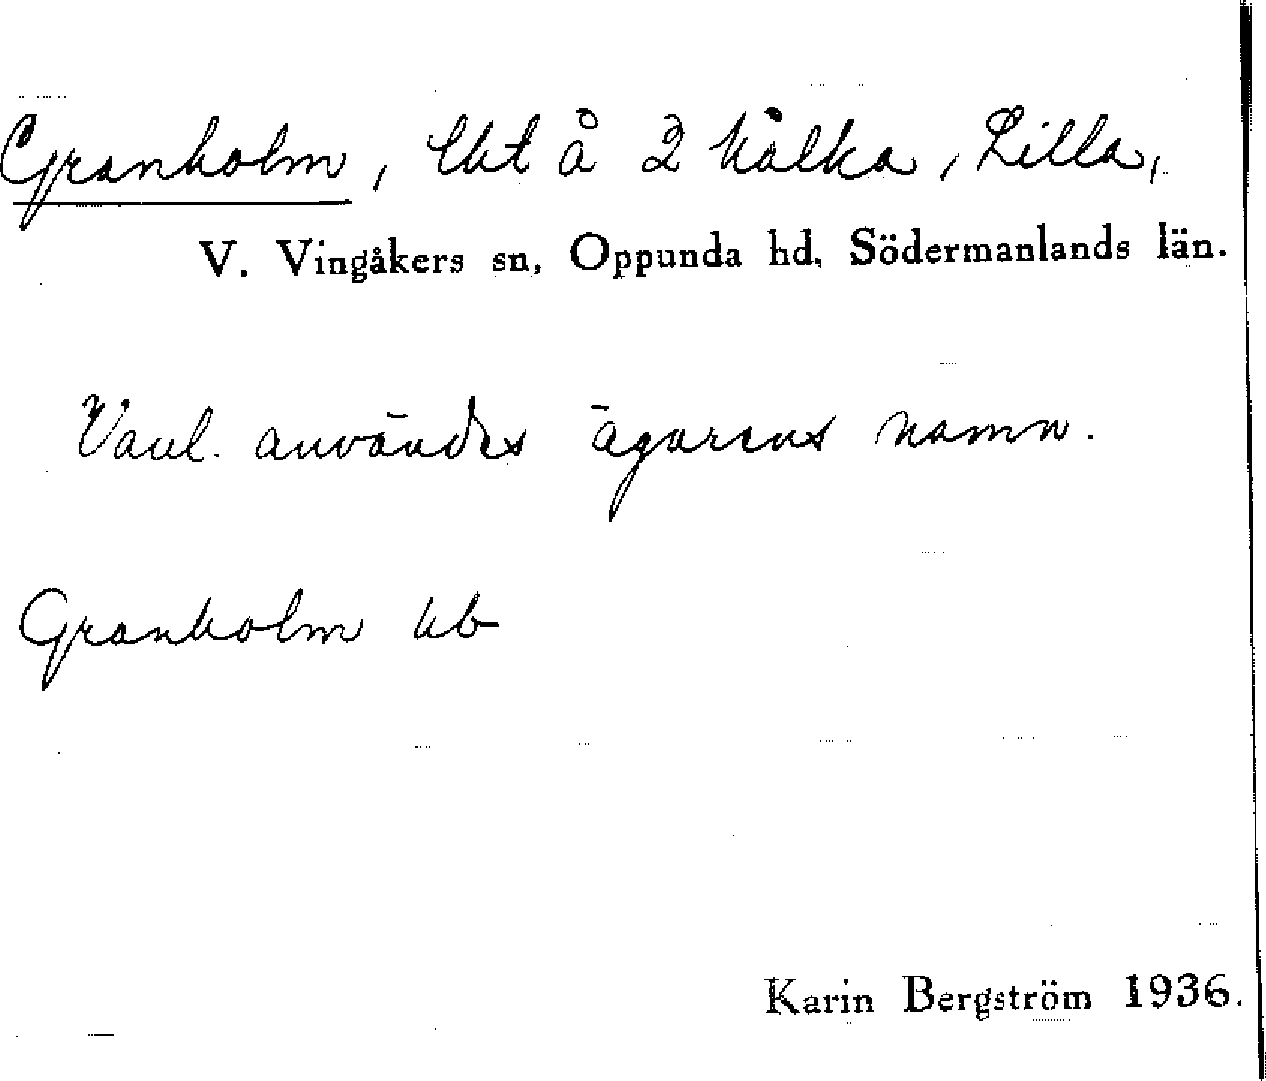 Granholm, lht å 2 Kålka, Lilla,
V. Vingåkers sn, Oppunda hd, Södermanlands län.
Vanl. användes ägarens namn.
Granholm kb
Karin Bergström 1936.